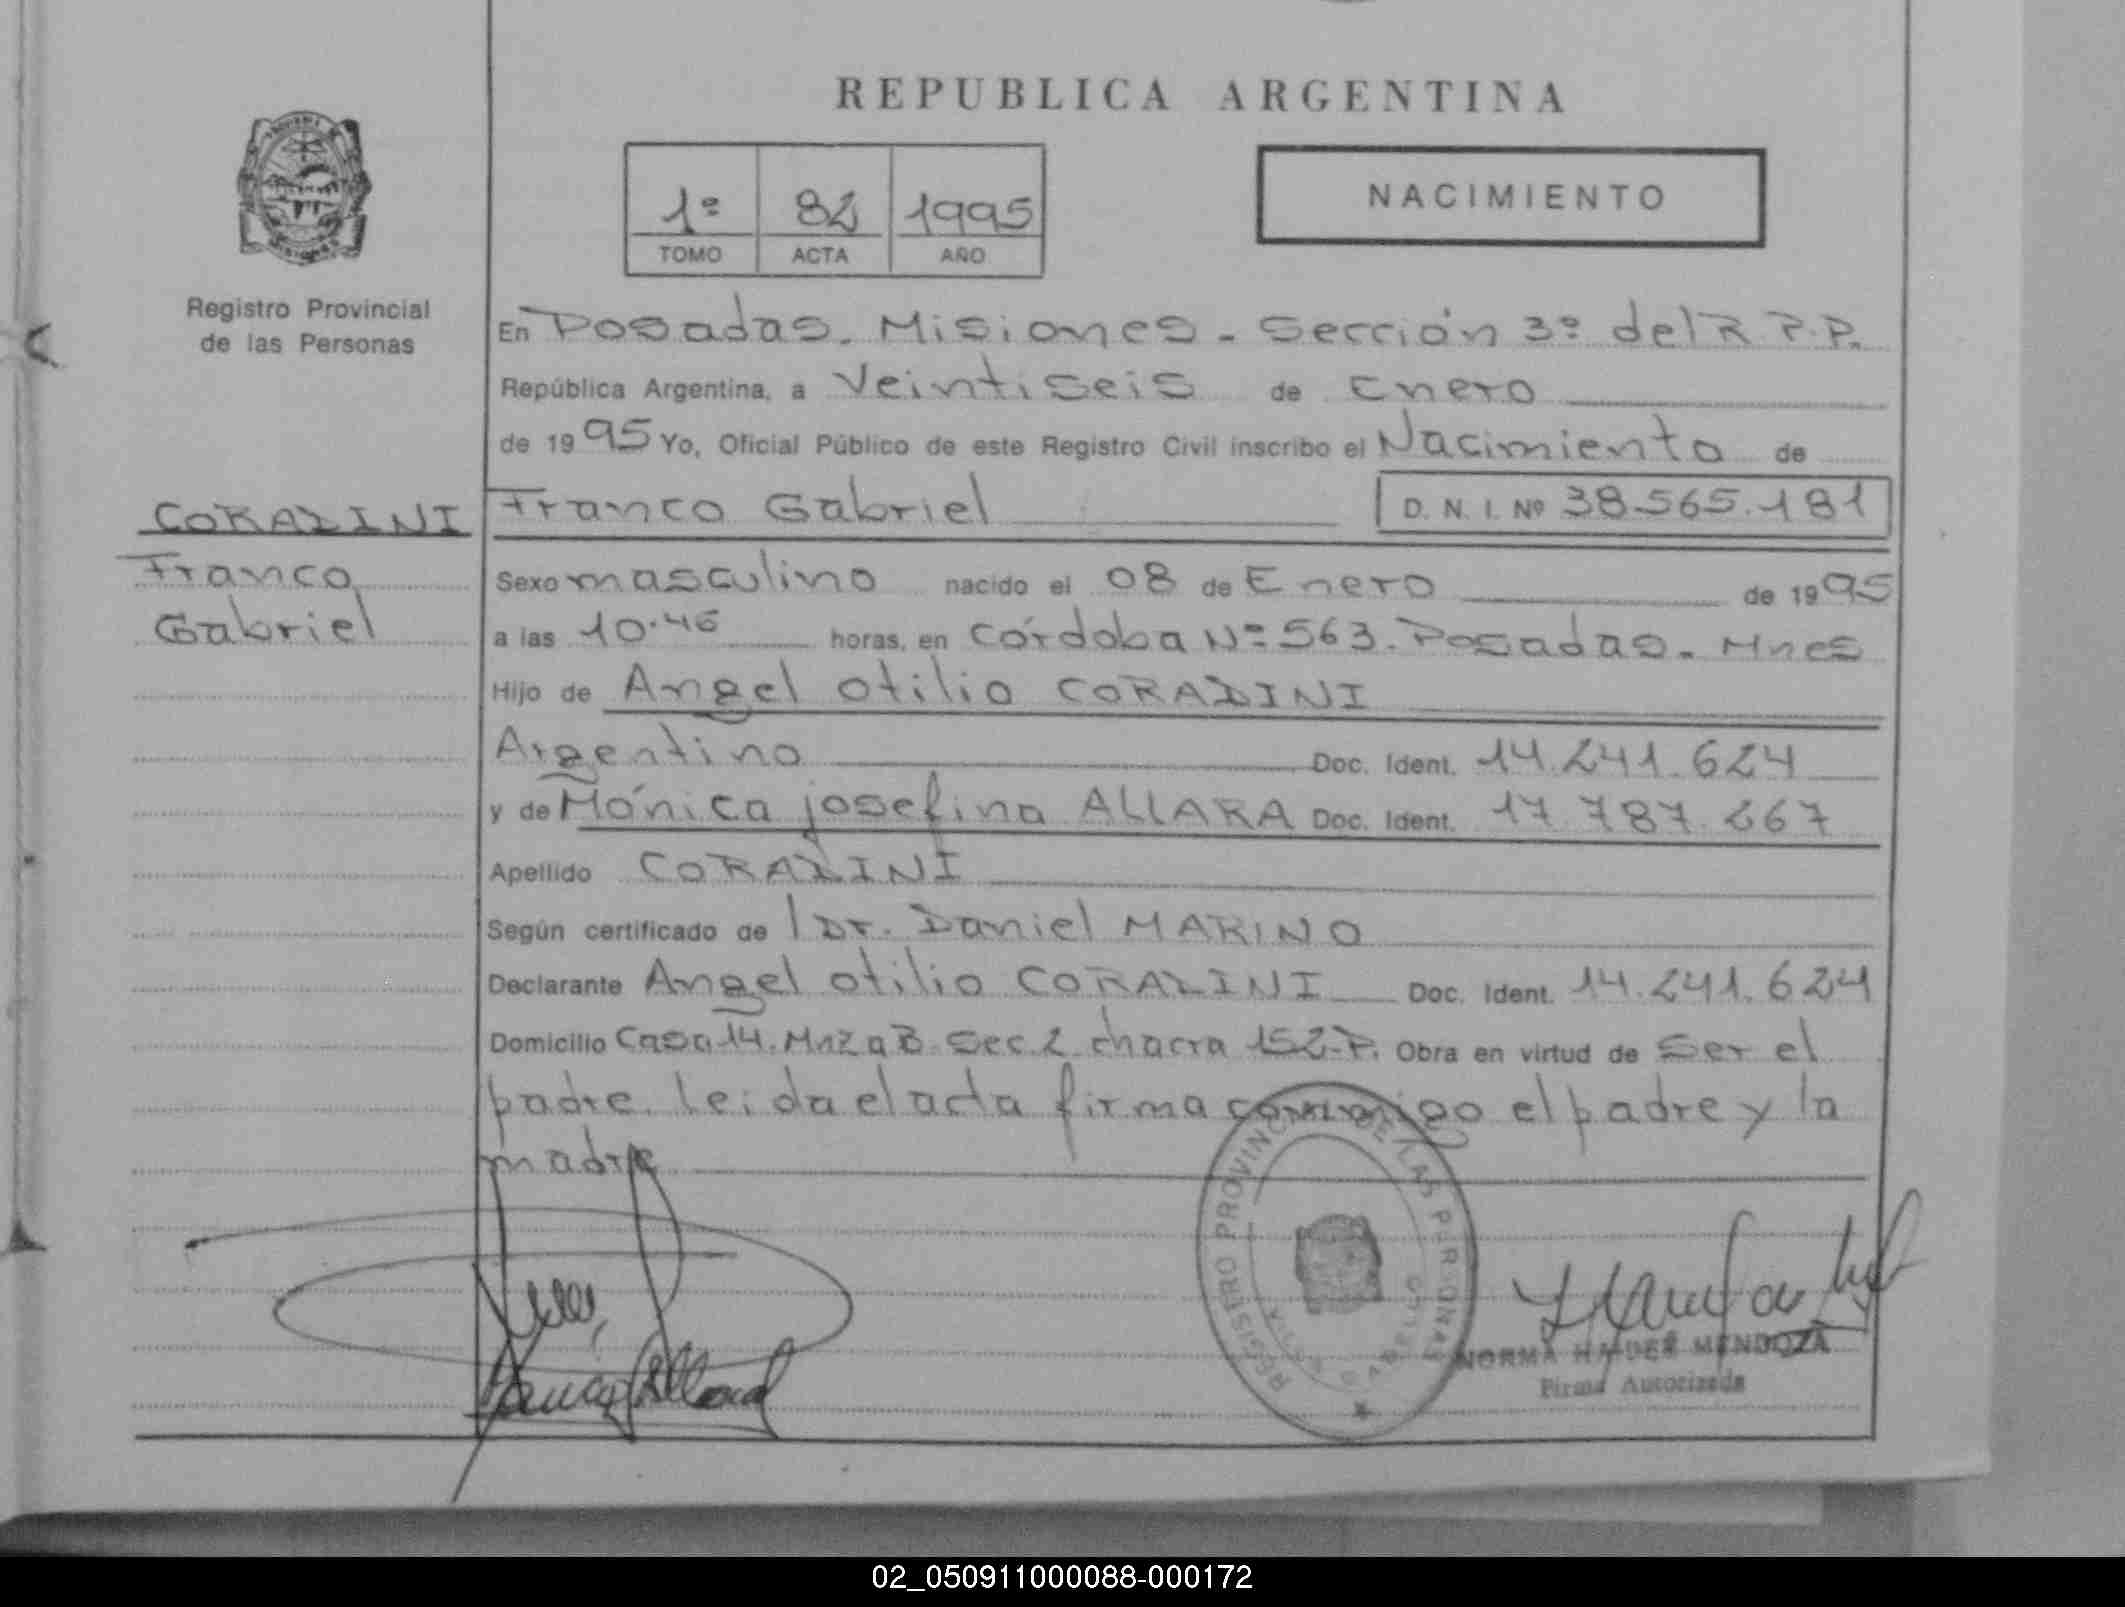 REPUBLICA ARGENTINA
1º 82 1995
TOMO ACTA AÑO
NACIMIENTO
Registro Provincial
de las Personas
CORADINI
Franco
Gabriel
En Posadas. Misiones - Sección 3º del R.P.P.
República Argentina, a Veintiseis de Enero
de 1995 Yo, Oficial Público de este Registro Civil inscribo el Nacimiento de
Franco Gabriel D. N. I. Nº 38.565.181
Sexo masculino nacido el 08 de Enero de 1995
a las 10.46 horas, en Córdoba Nº 563. Posadas. Mnes
Hijo de Angel Otilio CORADINI
Argentino Doc. Ident. 14.241.624
y de Mónica josefina ALLARA Doc. Ident. 17.787.267
Apellido CORADINI
Según certificado de l Dr. Daniel MARINO
Declarante Angel Otilio CORADINI Doc. Ident. 14.241.624
Domicilio Casa 14. Mnza B. Sec. 2 chacra 152-P. Obra en virtud de Ser el
padre. Leida el acta firma conmigo el padre y la
madre
REGISTRO PROVINCIAL DE LAS PERSONAS
NORMA HAIDEE MENDOZA
Firma Autorizada
02_050911000088-000172